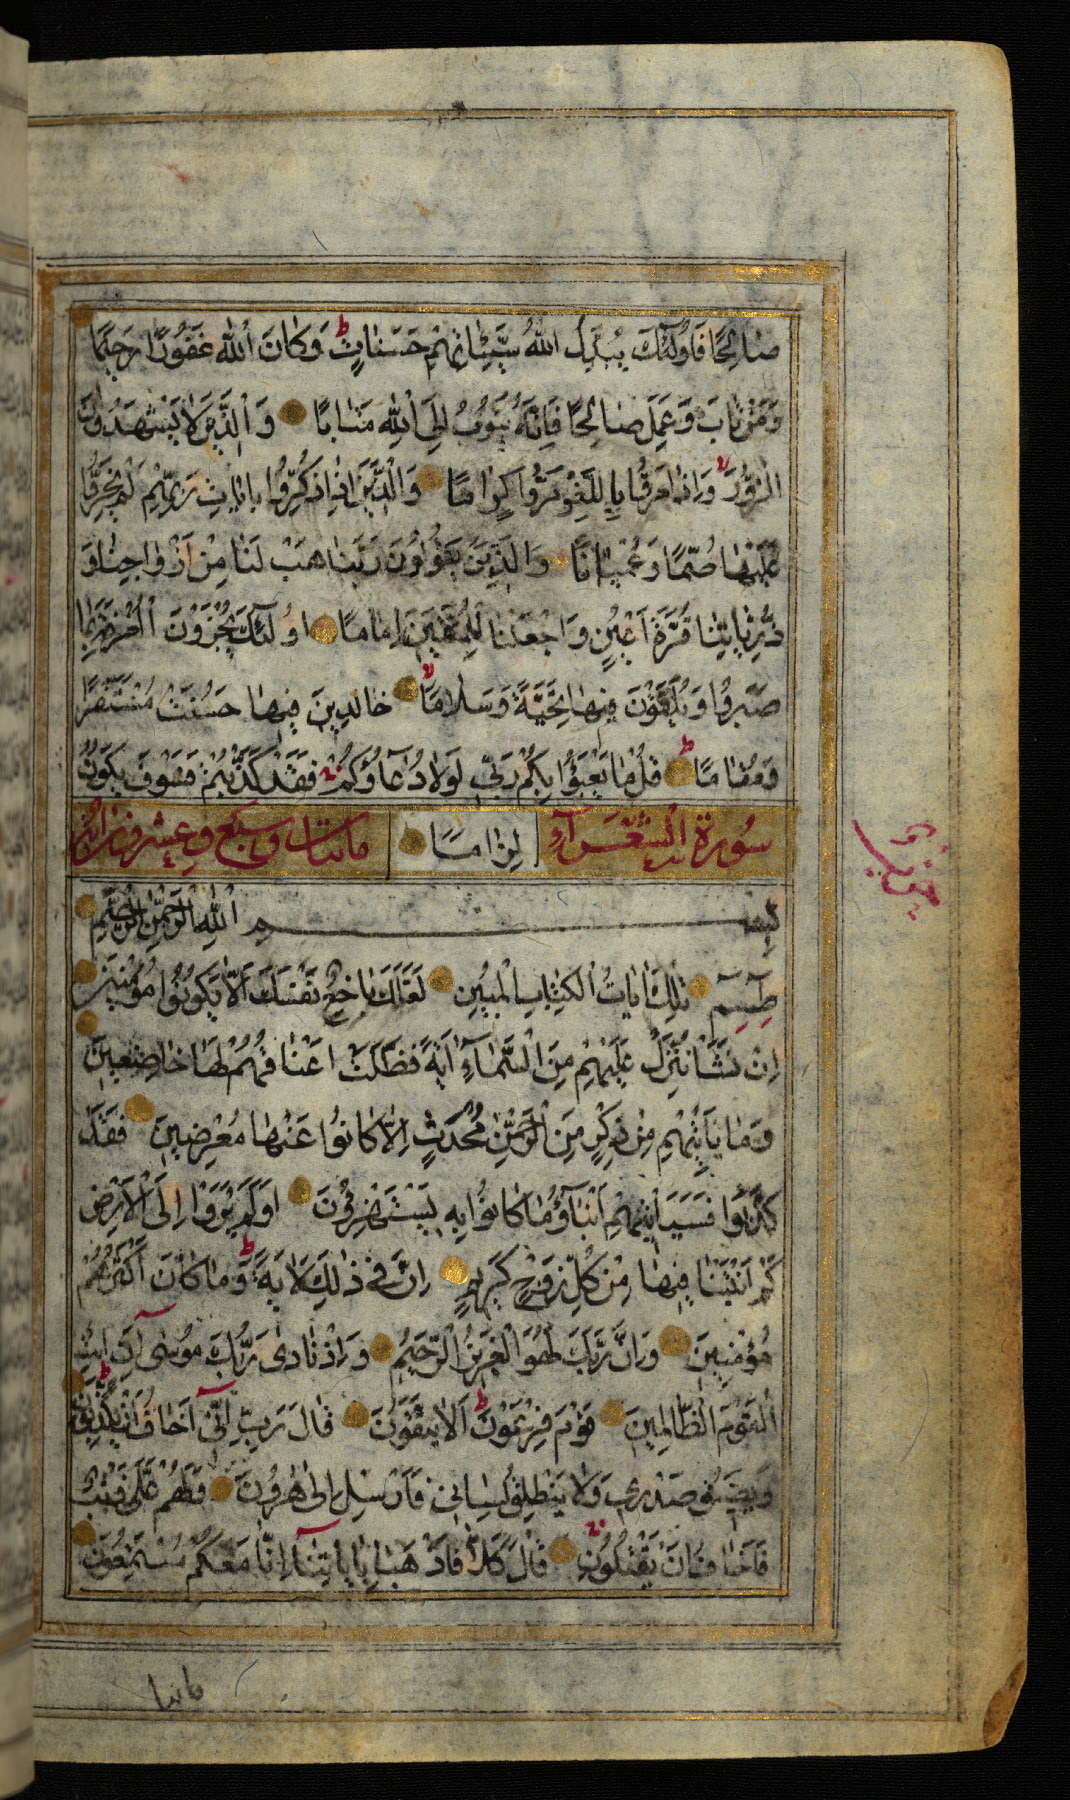 صَالِحًا فَاُولٰئِكَ يُبَدِّلُ اللهُ سَيِّئَاتِهِمْ حَسَنَاتٍ ط وَكَانَ اللهُ غَفُورًا رَحِيمًا
وَمَنْ تَابَ وَعَمِلَ صَالِحًا فَاِنَّهُ يَتُوبُ اِلَى اللهِ مَتَابًا وَالَّذِينَ لَا يَشْهَدُونَ
الزُّورَ لا وَاِذَا مَرُّوا بِاللَّغْوِ مَرُّوا كِرَامًا وَالَّذِينَ اِذَا ذُكِّرُوا بِاٰيَاتِ رَبِّهِمْ لَمْ يَخِرُّوا
عَلَيْهَا صُمًّا وَعُمْيَانًا وَالَّذِينَ يَقُولُونَ رَبَّنَا هَبْ لَنَا مِنْ اَزْوَاجِنَا وَ
ذُرِّيَّاتِنَا قُرَّةَ اَعْيُنٍ وَاجْعَلْنَا لِلْمُتَّقِينَ اِمَامًا اُولٰئِكَ يُجْزَوْنَ الْغُرْفَةَ بِمَا
صَبَرُوا وَيُلَقَّوْنَ فِيهَا تَحِيَّةً وَسَلَامًا لا خَالِدِينَ فِيهَا حَسُنَتْ مُسْتَقَرًّا
وَمُقَامًا ط قُلْ مَا يَعْبَؤُا بِكُمْ رَبِّي لَوْلَا دُعَاؤُكُمْ فَقَدْ كَذَّبْتُمْ فَسَوْفَ يَكُونُ
سُورَةُ الشُّعَرَآءِ لِزَامًا مائتان وسبع وعشرون اية
بِسْمِ اللهِ الرَّحْمٰنِ الرَّحِيمِ
طٰسٓمٓ تِلْكَ اٰيَاتُ الْكِتَابِ الْمُبِينِ لَعَلَّكَ بَاخِعٌ نَفْسَكَ اَلَّا يَكُونُوا مُؤْمِنِينَ
اِنْ نَشَأْ نُنَزِّلْ عَلَيْهِمْ مِنَ السَّمَآءِ اٰيَةً فَظَلَّتْ اَعْنَاقُهُمْ لَهَا خَاضِعِينَ
وَمَا يَأْتِيهِمْ مِنْ ذِكْرٍ مِنَ الرَّحْمٰنِ مُحْدَثٍ اِلَّا كَانُوا عَنْهَا مُعْرِضِينَ فَقَدْ
كَذَّبُوا فَسَيَأْتِيهِمْ اَنْبَآؤُ مَا كَانُوا بِهِ يَسْتَهْزِؤُنَ اَوَلَمْ يَرَوْا اِلَى الْاَرْضِ
كَمْ اَنْبَتْنَا فِيهَا مِنْ كُلِّ زَوْجٍ كَرِيمٍ اِنَّ فِي ذٰلِكَ لَاٰيَةً ط وَمَا كَانَ اَكْثَرُهُمْ
مُؤْمِنِينَ وَاِنَّ رَبَّكَ لَهُوَ الْعَزِيزُ الرَّحِيمُ وَاِذْ نَادٰى رَبُّكَ مُوسٰى اَنِ ائْتِ
الْقَوْمَ الظَّالِمِينَ قَوْمَ فِرْعَوْنَ ط اَلَا يَتَّقُونَ قَالَ رَبِّ اِنِّي اَخَافُ اَنْ يُكَذِّبُونِ ط
وَيَضِيقُ صَدْرِي وَلَا يَنْطَلِقُ لِسَانِي فَاَرْسِلْ اِلٰى هٰرُونَ وَلَهُمْ عَلَيَّ ذَنْبٌ
فَاَخَافُ اَنْ يَقْتُلُونِ قَالَ كَلَّا فَاذْهَبَا بِاٰيَاتِنَا اِنَّا مَعَكُمْ مُسْتَمِعُونَ
فاتيا